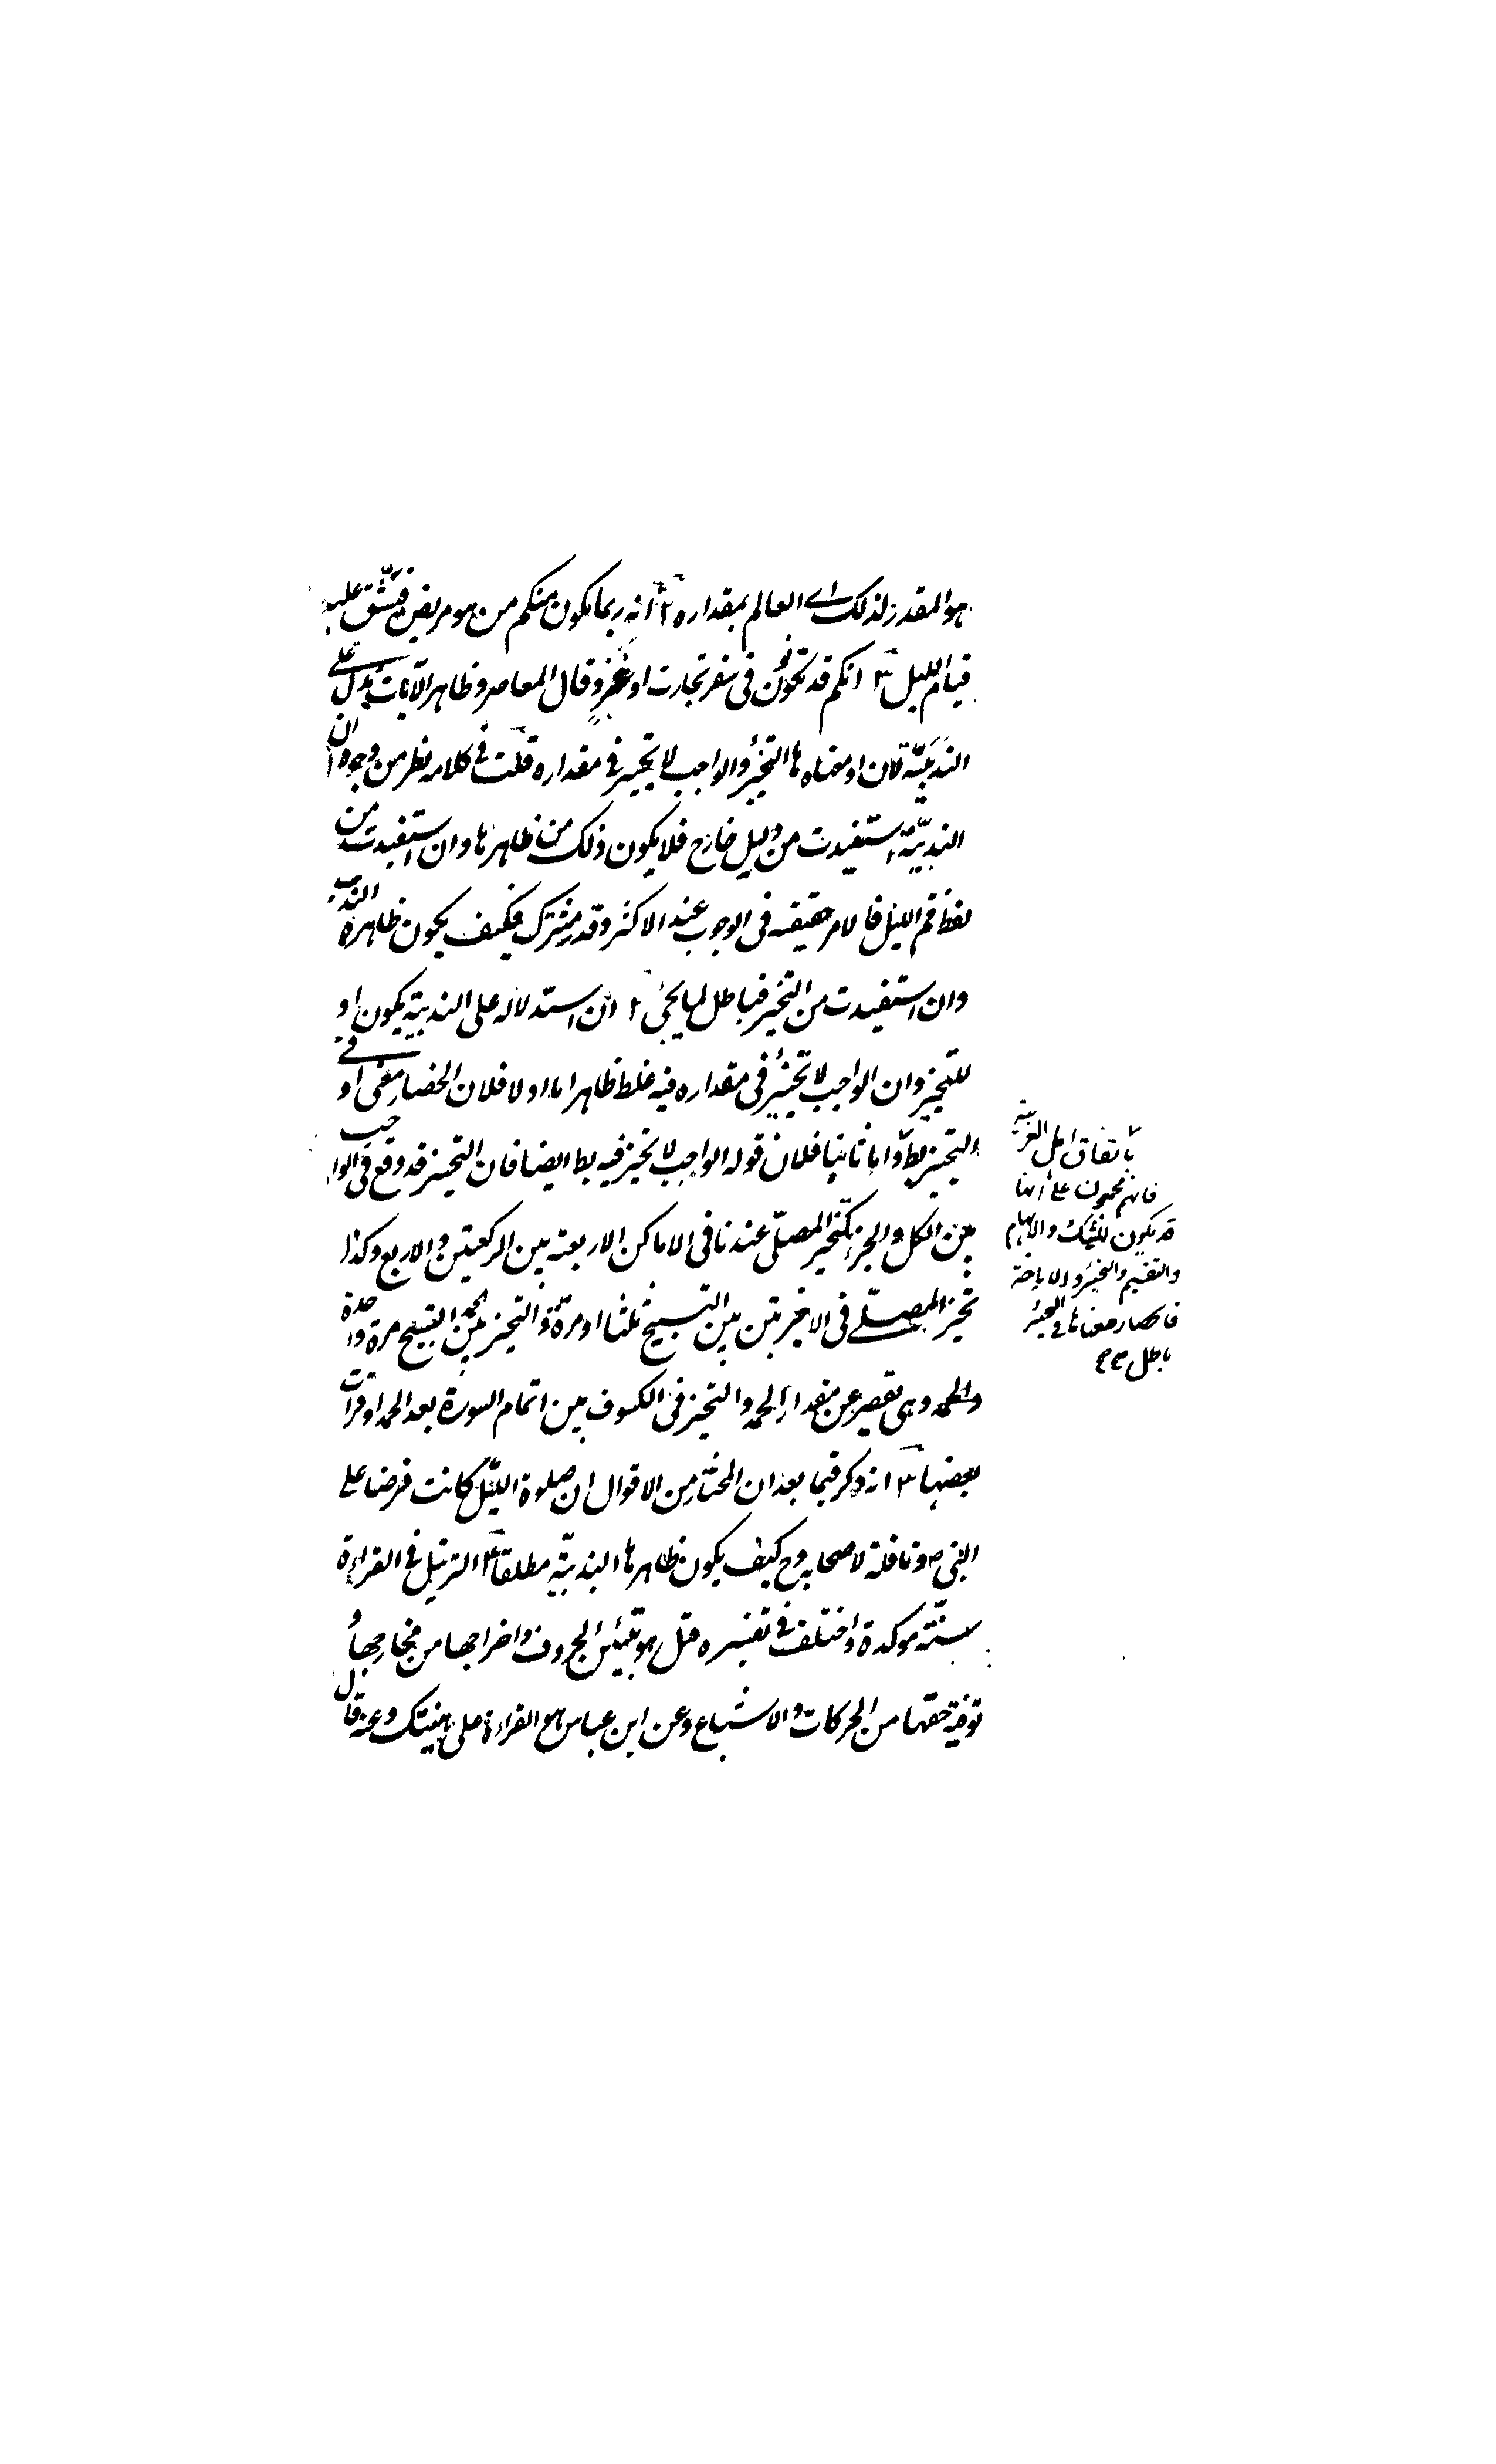 هو المقدر لذلك اى العالم بمقداره ٢ انه ربما يكون منكم من هو مريض فيشق عليه
قيام الليل ٣ انكم قد تكون فى سفر تجارت او غزو وقال المعاصر وظاهر الآيات يدل على
الندبية لان او معناه ها التخير والواجب لا تخيير فى مقداره قلت فى كلامه نظر من وجوه ا ان
الندبية استفيدت من دليل خارج فلا يكون ذلك من ظاهرها وان استفيدت من
لفظ قم الليل فالامر حقيقه فى الوجوب عند الاكثر وقدر مشترك فكيف يكون ظاهره الندب
وان استفيدت من التخير فباطل لما يجئ ٢ ان استدلاله على الندبية يكون او
للتخير وان الواجب لا تخير فى مقداره فيه غلط ظاهر اما اولا فلان انحصار معنى او فى
التخيير بط واما ثانيا فلان قوله الواجب لا تخير فيه بط ايضا فان التخير قد وقع فى الواجب
بين الكل والجزء كتخير المصلى عندنا فى الاماكن الاربعة بين الركعتين والاربع وكذا
تخير المصلى فى الاخيرتين بين التسبيح ثلثا او مرة والتخير بين الحمد التسبيح مرة واحدة
والحمد وهى تقصير عن مقدار الحمد والتخير فى الكسوف بين اتمام السورة بعد الحمد او قرات
بعضها ٣ انه ذكر فيما بعد ان المختار من الاقوال ان صلوة الليل كانت فرضا على
النبى ص ونافلة لاصحابه وح كيف يكون ظاهرها الندبية مطلقا ٤ الترتيل فى القراءة
سنة موكدة واختلف فى تفسيره قيل هو تبيين الحروف واخراجها من مخارجها و
توفية حقها من الحركات والاشباع وعن ابن عباس هو القراءة على هينتك وعنه قال
باتفاق اهل العربية
فانهم مجمعون على انها
قد يكون للشك والابهام
والتقسيم والتخير والاباحة
فانحصار معناها فى التخير
باطل